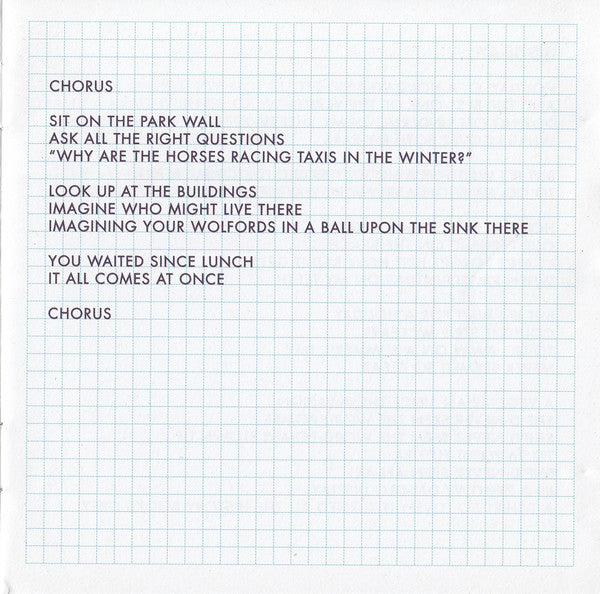 CHORUS
SIT ON THE PARK WALL
ASK ALL THE RIGHT QUESTIONS
“WHY ARE THE HORSES RACING TAXIS IN THE WINTER?”
LOOK UP AT THE BUILDINGS
IMAGINE WHO MIGHT LIVE THERE
IMAGINING YOUR WOLFORDS IN A BALL UPON THE SINK THERE
YOU WAITED SINCE LUNCH
IT ALL COMES AT ONCE
CHORUS